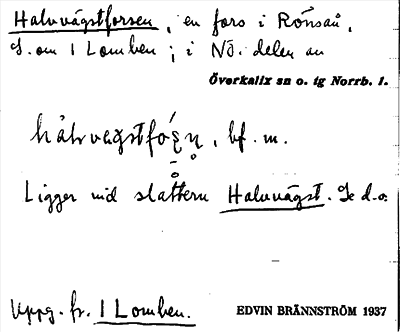 Halvvägstforsen, en fors i Rönsån,
S. om 1 Lomben; i Nö. delen av
Överkalix sn o. tg Norrb. l.
bf. m.
Ligger vid slåttern Halvvägst. Se d.o.
Uppg. fr. 1 Lomben.
EDVIN BRÄNNSTRÖM 1937